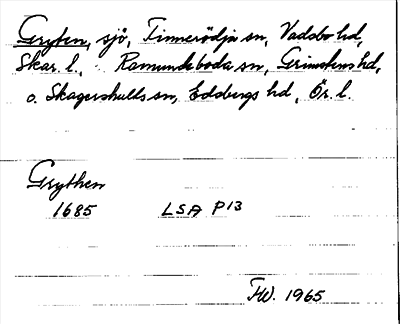 Gryten, sjö, Finnerödja sn, Vadsbo hd,
Skar. l., Ramundeboda sn, Grimstens hd,
o. Skagershults sn, Edsbergs hd, Ör. l.
Grythen
1685 LSA P13
FW. 1965